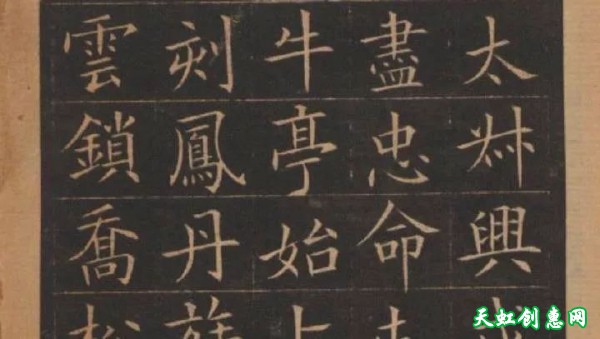 太興
盡忠命
牛亭始上
刻鳳丹
雲鎖喬松
天虹创惠网